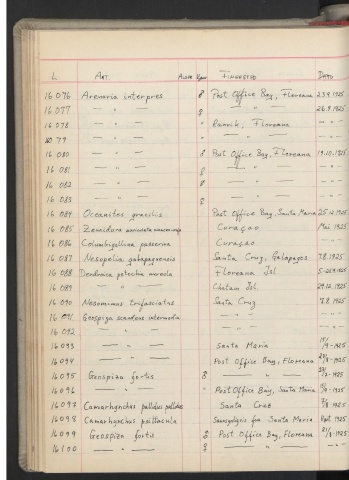 L. ART. Alder Kjønn FINNESTED DATO
16076 Arenaria interpres ♂ Post Office Bay, Floreana 23.9.1925
16077 — " — ♀ — " — 26.9.1925
16078 — " — Ranvik, Floreana — " —
16079 — " — — " — — " —
16080 — " — ♂ Post Office Bay, Floreana 19.10.1925
16081 — " — ♀ — " — — " —
16082 — " — ♂ — " — — " —
16083 — " — ♀ — " — — " —
16084 Oceanites gracilis Post Office Bay, Santa Maria 25.12.1925
16085 Zenaidura auriculata Curaçao Mai 1925
16086 Columbigallina passerina Curaçao — " —
16087 Nesopelia galapagoensis Santa Cruz, Galapagos 7.8.1925
16088 Dendroica petechia aureola Floreana Isl. 1925
16089 — " — Chatam Isl. 29.12.1925
16090 Nesomimus trifasciatus Santa Cruz 7.8.1925
16091 Geospiza scandens intermedia — " — — " —
16092 — " — — " — — " —
16093 — " — Santa Maria 1925
16094 — " — Post Office Bay, Floreana 1925
16095 Geospiza fortis ♂ — " — 1925
16096 — " — Post Office Bay, Santa Maria 1925
16097 Camarhynchus pallidus pallidus Santa Cruz 1925
16098 Camarhynchus psittacula Santa Maria Sept. 1925
16099 Geospiza fortis ♀ Post Office Bay, Floreana 1925
16100 — " — ♀ — " — — " —